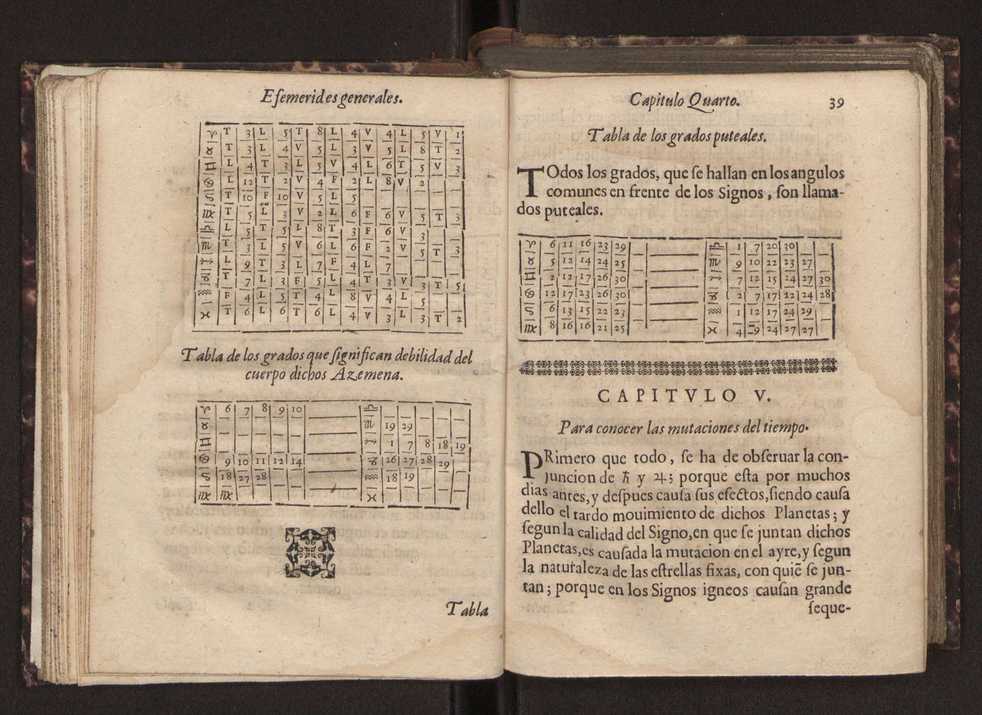 Efemerides generales.
♈ T 3 L 5 T 8 L 4 V 4 L 5 V 1
♉ T 3 L 4 V 5 L 3 V 5 L 8 T 2
♊ L 4 T 3 L 5 V 4 L 6 T 5 V 3
♋ L 12 T 2 V 4 F 2 L 8 V 2
♌ T 10 F 10 V 5 L 5
♍ T 5 L 3 V 2 L 6 F 6 V 5 T 3
♎ T 5 L 5 L 8 T 3 F 6 V 3
♏ T 3 L 5 V 6 L 6 F 2 V 5 T 3
♐ L 9 T 3 L 7 F 4 L 7
♑ T 7 L 3 F 5 L 4 T 3 V 3 T 5
♒ F 4 L 5 T 4 L 8 V 4 L 5
♓ T 6 L 6 T 6 L 4 V 3 L 3 T 2
Tabla de los grados que ſignifican debilidad del
cuerpo dichos Azemena.
♈ 6 7 8 9 10 ♎
♉ ♏ 19 29
♊ ♐ 1 7 8 18 19
♋ 9 10 11 12 14 ♑ 26 27 28 29
♌ 18 27 28 ♒ 18 19
♍ ♍ ♓
Tabla
Capitulo Quarto. 39
Tabla de los grados puteales.
TOdos los grados, que ſe hallan en los angulos
comunes en frente de los Signos, ſon llama-
dos puteales.
♈ 6 11 16 23 29 ♎ 1 7 20 30
♉ 5 12 14 24 25 ♏ 9 10 22 23 27
♊ 2 12 17 26 30 ♐ 7 12 15 24 27 30
♋ 12 17 23 26 30 ♑ 2 7 17 22 24 28
♌ 6 13 15 22 23 ♒ 1 12 17 24 29
♍ 8 16 16 21 25 ♓ 4 9 24 27 27
CAPITVLO V.
Para conocer las mutaciones del tiempo.
PRimero que todo, ſe ha de obſeruar la con-
juncion de ♄ y ♃; porque eſta por muchos
dias antes, y deſpues cauſa ſus efectos, ſiendo cauſa
dello el tardo mouimiento de dichos Planetas; y
ſegun la calidad del Signo, en que ſe juntan dichos
Planetas, es cauſada la mutacion en el ayre, y ſegun
la naturaleza de las eſtrellas fixas, con quiẽ ſe jun-
tan; porque en los Signos igneos cauſan grande
ſeque-